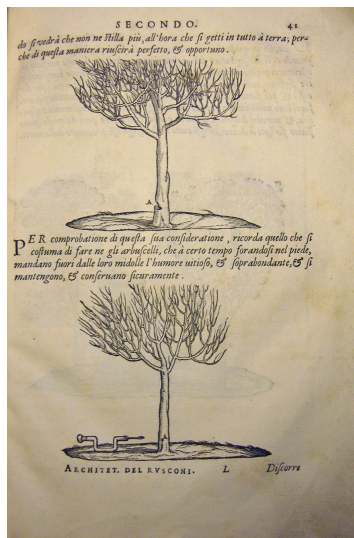 SECONDO. 41
do si vedrà che non ne stilla più, all'hora che si getti in tutto à terra; per-
che di questa maniera riuscirà perfetto, & opportuno.
A
PER comprobatione di questa sua consideratione, ricorda quello che si
costuma di fare ne gli arbuscelli, che à certo tempo forandosi nel piede,
mandano fuori dalle loro midolle l'humore uitioso, & soprabondante, & si
mantengono, & conseruano sicuramente.
ARCHITET. DEL RVSCONI. L Discorre